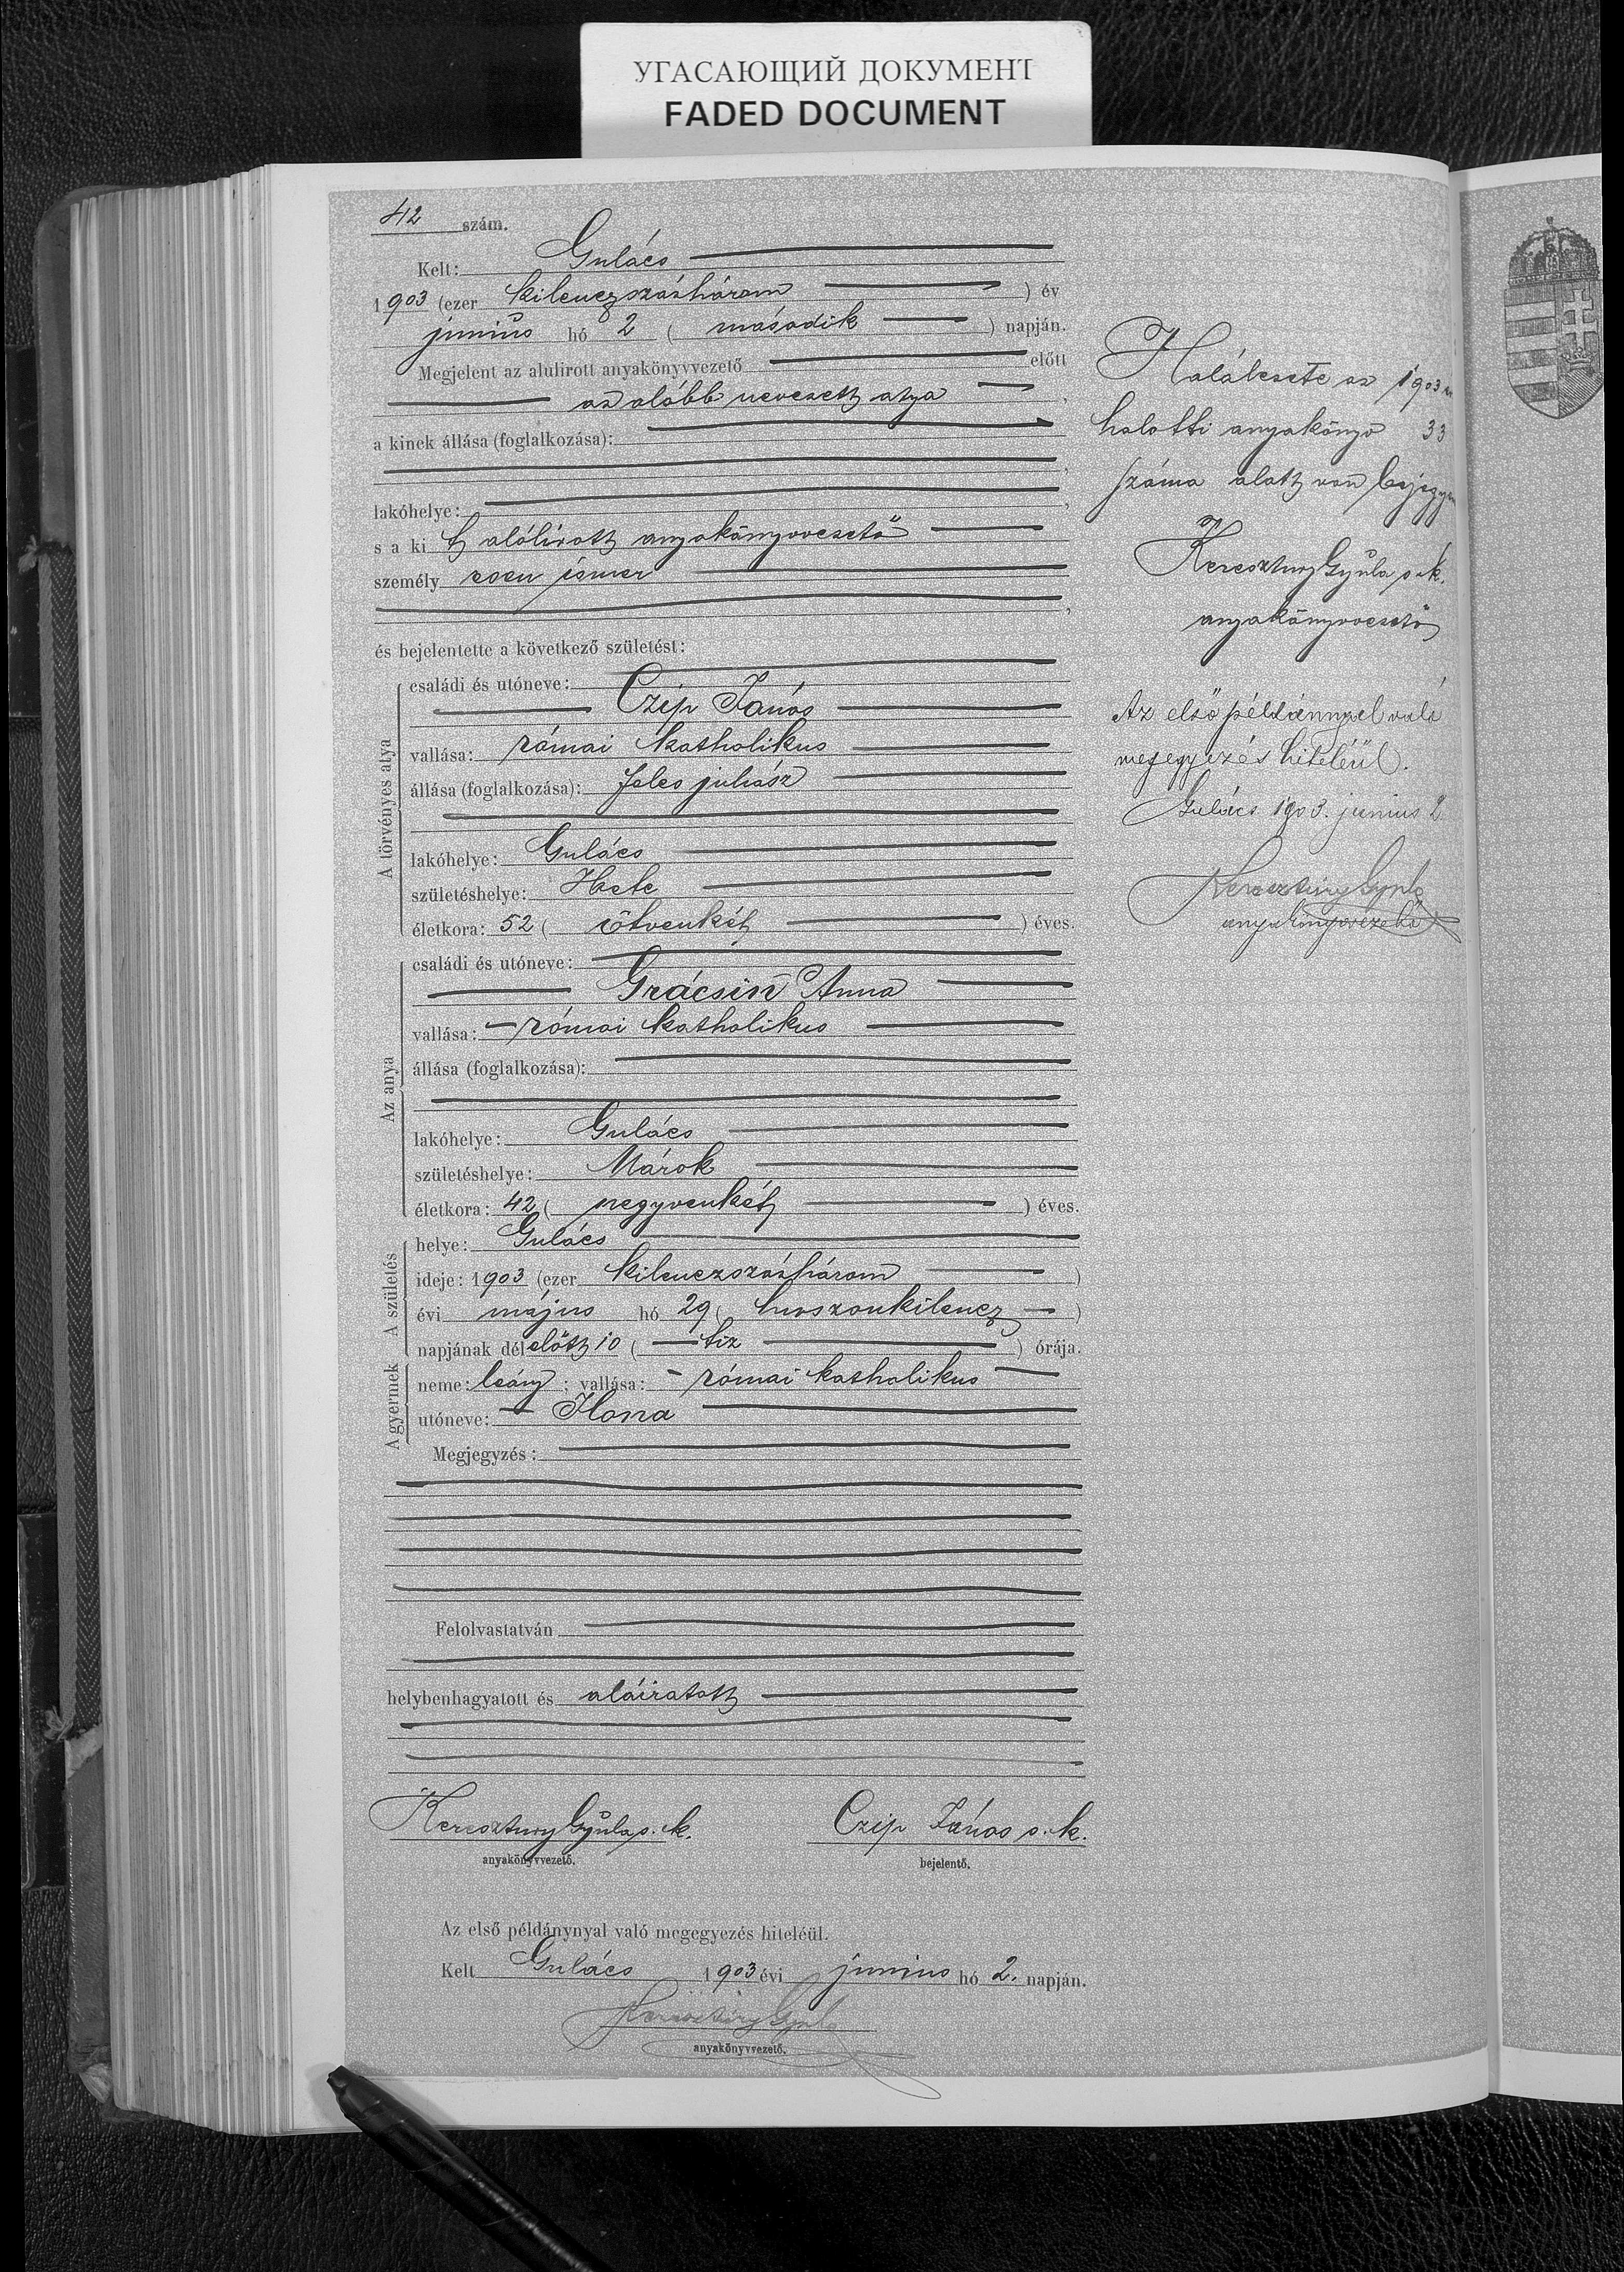 УГАСАЮЩИЙ ДОКУМЕНТ
FADED DOCUMENT
42 szám.
Kelt: Gulács
1903 (ezer kilenczszázhárom) év
június hó 2 (második) napján.
Megjelent az alulirott anyakönyvvezető előtt
az alább nevezett atya,
a kinek állása (foglalkozása):
,
lakóhelye: ,
s a ki t alólirott anyakönyvvezető
személyesen ismer
,
és bejelentette a következő születést:
A törvényes atya
családi és utóneve:
Czip János
vallása: római katholikus
állása (foglalkozása): juhász
lakóhelye: Gulács
születéshelye: Hete
életkora: 52 (ötvenkét) éves.
Az anya
családi és utóneve:
Grácsin Anna
vallása: római katholikus
állása (foglalkozása):
lakóhelye: Gulács
születéshelye: Márok
életkora: 42 (negyvenkét) éves.
A születés
helye: Gulács
ideje: 1903 (ezer kilenczszázhárom)
évi május hó 29 (huszonkilencz)
napjának délelőtt 10 (tiz) órája.
A gyermek
neme: leány; vallása: római katholikus
utóneve: Ilona
Megjegyzés:
Felolvastatván
helybenhagyatott és aláiratott
Keresztury Gyula s. k.
anyakönyvvezető.
Czip János s. k.
bejelentő.
Az első példánynyal való megegyezés hiteléül.
Kelt Gulács 1903 évi június hó 2. napján.
Keresztury Gyula
anyakönyvvezető.
Halálesete az 1903
halotti anyakönyv 33
száma alatt van
Keresztury Gyula s. k.
anyakönyvvezető
Az első példánnyal való
megegyezés hiteléül.
Gulács 1903. junius 2
Keresztury Gyula
anyakönyvvezető